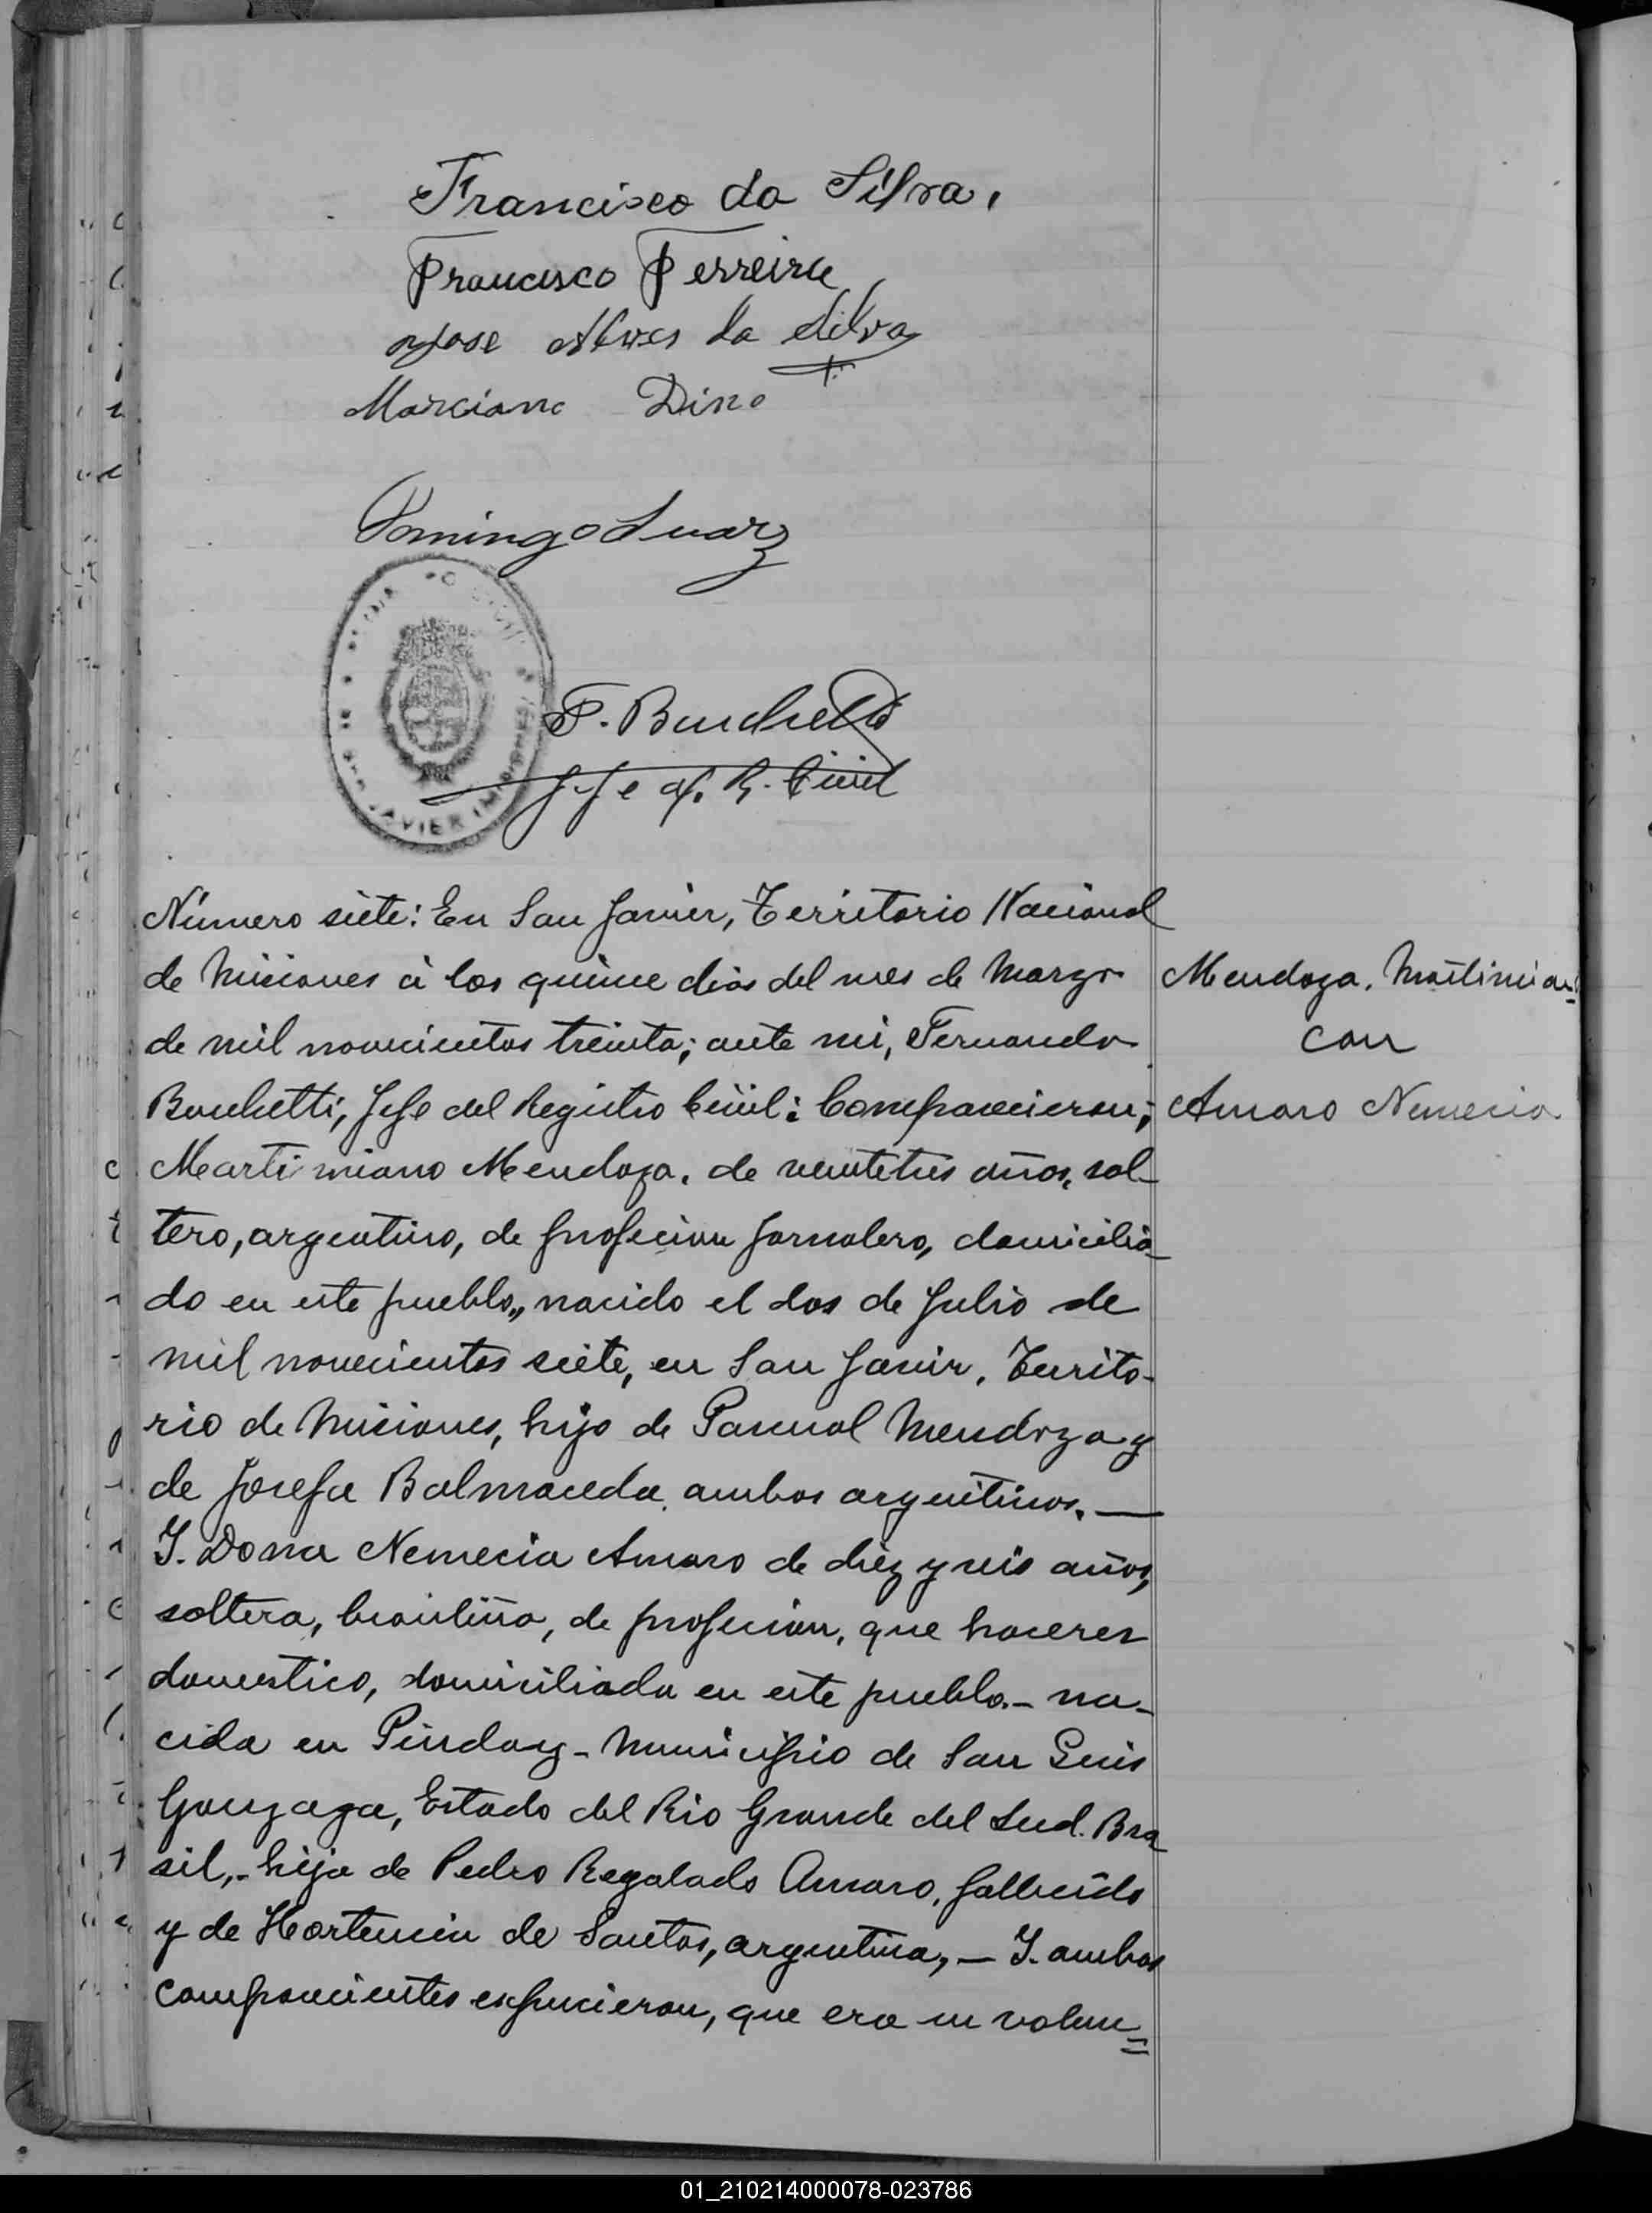 Francisco da Silva,
Francisco Ferreira
Jose Alves da Silva
Marciano Dino
Domingo Suarz
F. Bouchetti
Jefe of. R. Civil
JAVIER (MISIONES)
Número siete: En San Javier, Territorio Nacional
de Misiones á los quince dias del mes de Marzo
de mil novecientos treinta; ante mi, Fernando
Bouchetti, Jefe del Registro Civil: Comparecieron;
Martimiano Mendoza, de veintetrés años, sol-
tero, argentino, de profecion jornalero, domicilia-
do en este pueblo,, nacido el dos de Julio de
mil novecientos siete, en San Javier, Territo-
rio de Misiones, hijo de Pascual Mendoza y
de Josefa Balmaceda, ambos argentinos.—
Y. Dona Nemecia Amaro de diez y seis años,
soltera, brasileña, de profecion, que haceres
domestico, domiciliada en este pueblo.- na-
cida en Pinday- Municipio de San Luis
Gonzaga, Estado del Rio Grande del Sud. Bra
sil,- hija de Pedro Regalado Amaro, fallecido
y de Hortencia de Santos, argentina,— Y. ambos
comparecientes expucieron, que era su volun=
Mendoza, Martimian=
con
Amaro Nemecia
01_210214000078-023786